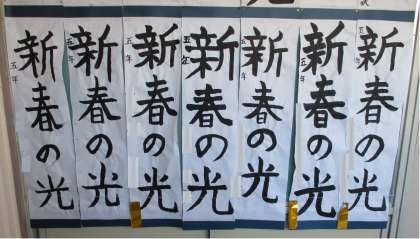 新春の光
五年
新春の光
五年
新春の光
五年
新春の光
五年
新春の光
五年
新春の光
五年
新春の光
五年